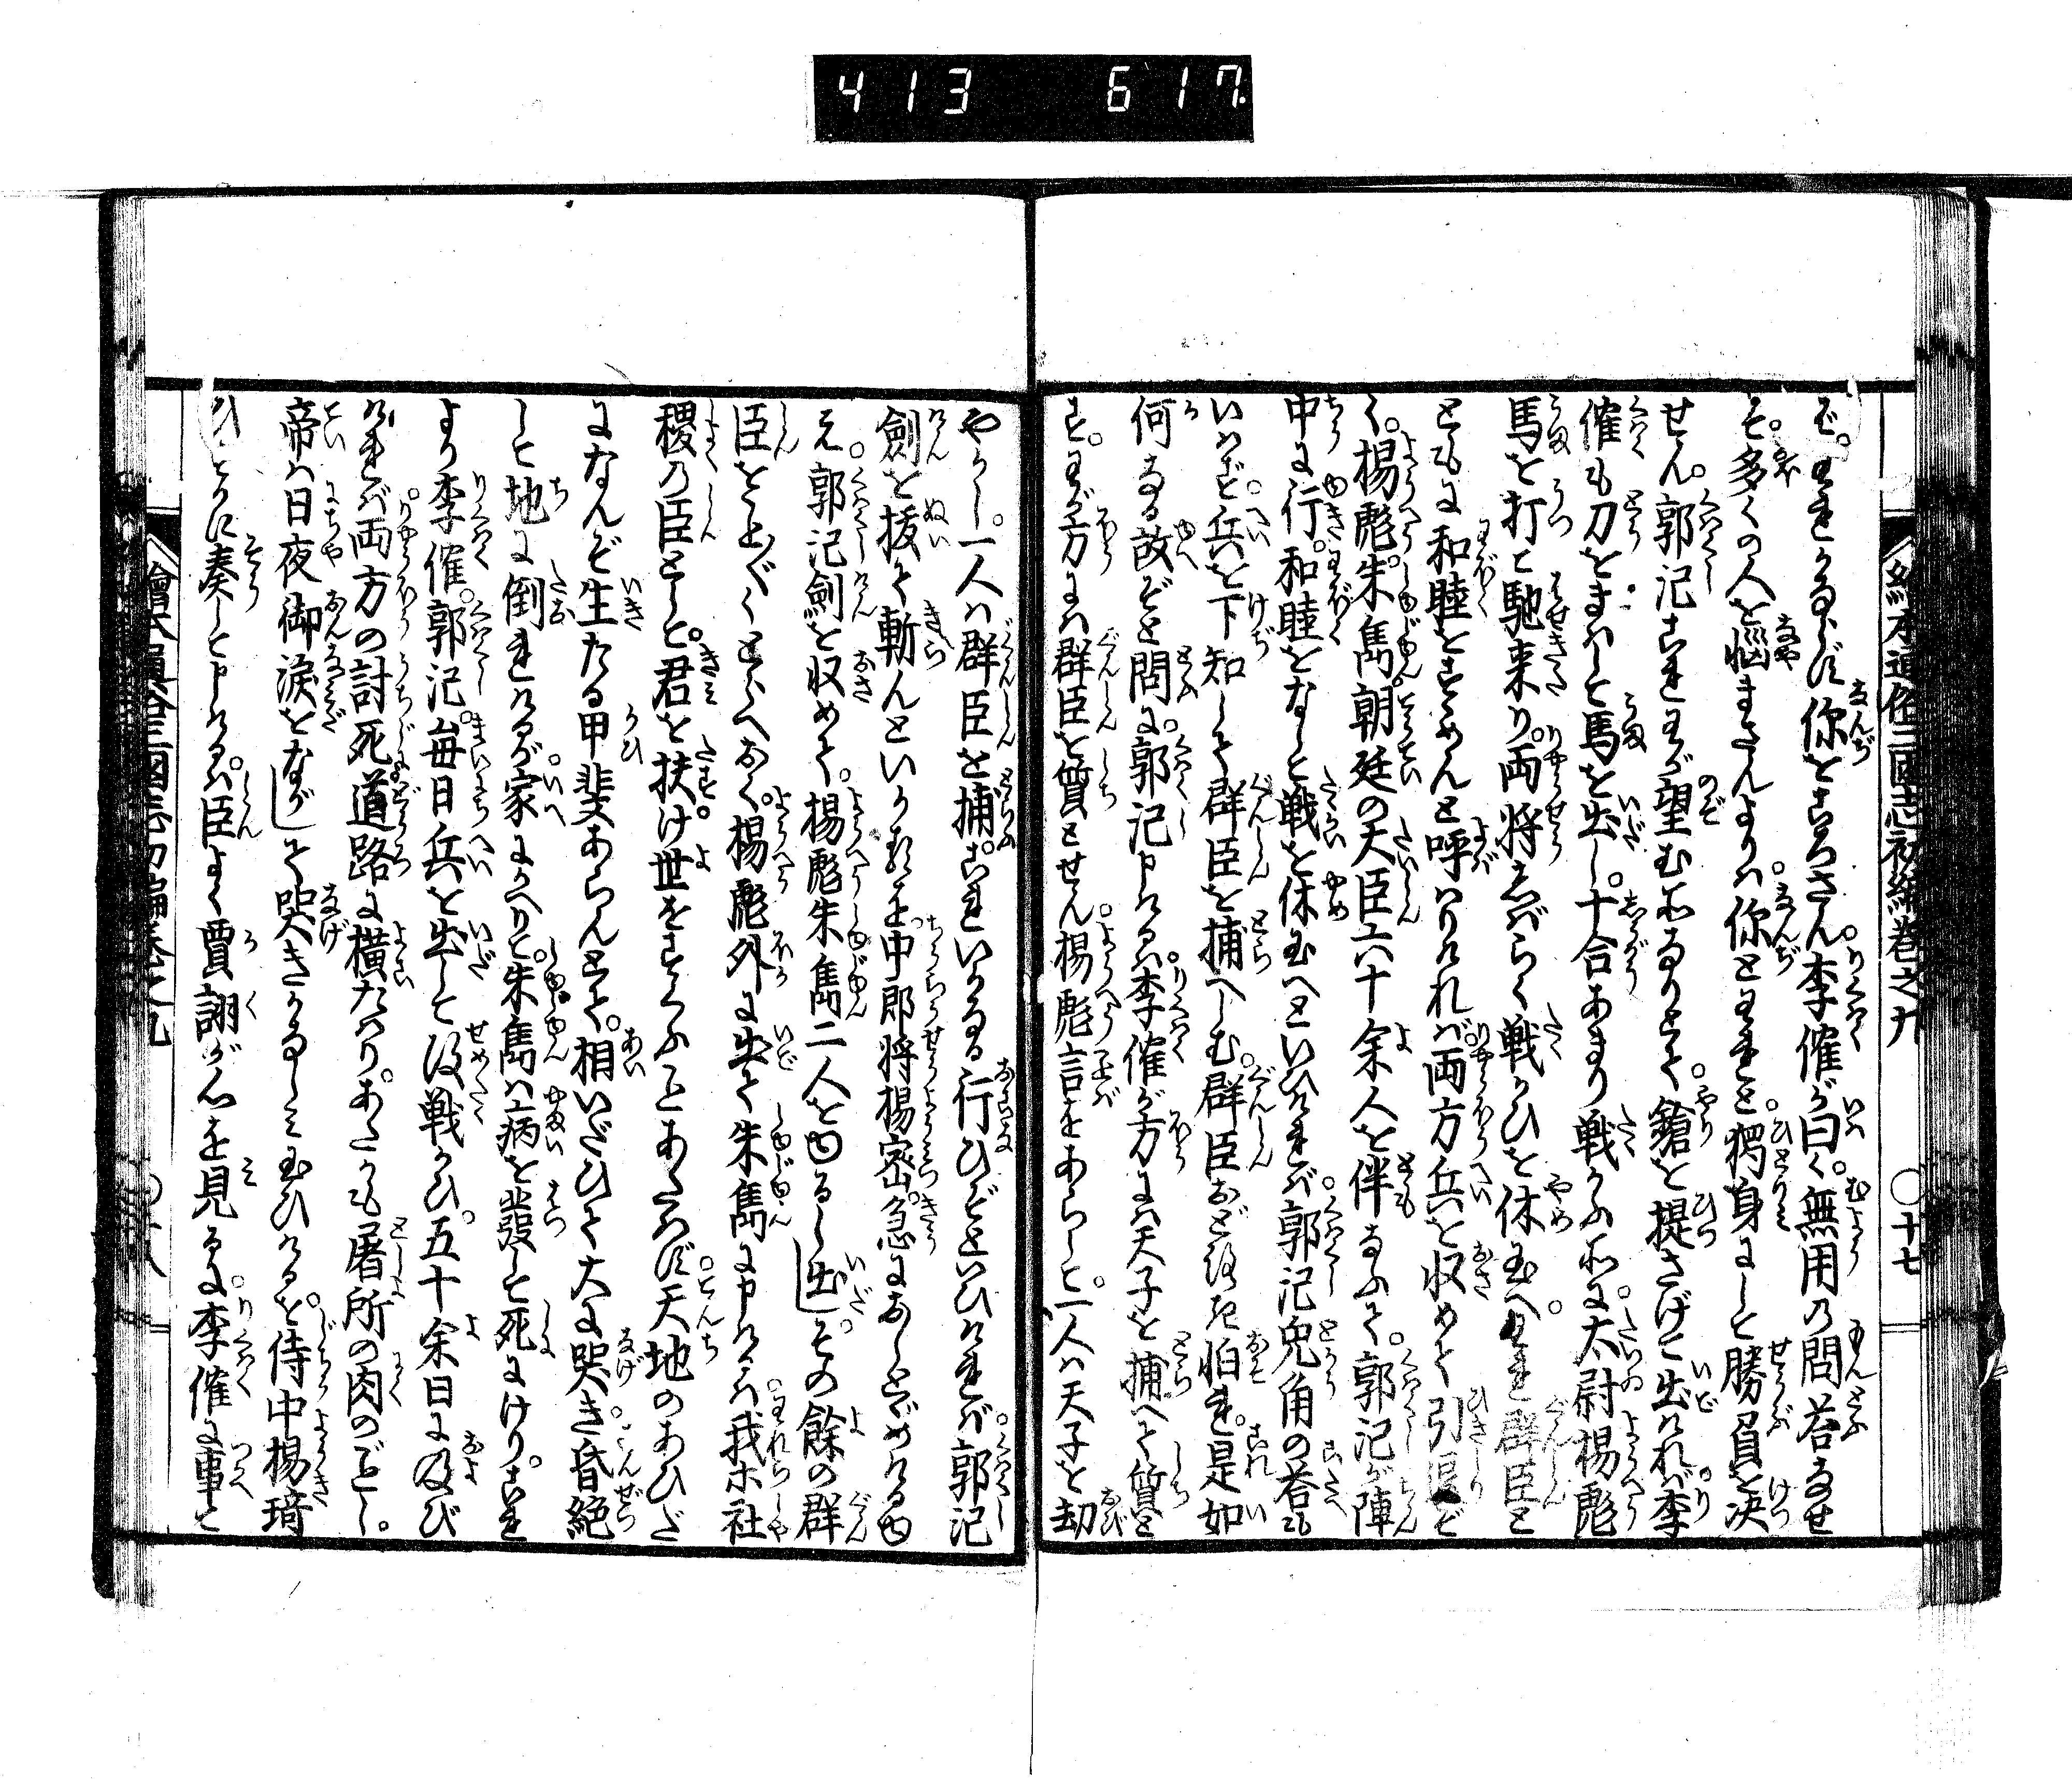 413 617.
絵本通俗三国志初編巻之九 〇十七
ぞ。われかならず你をころさん。李傕が曰く。無用の問荅なせ
そ。多くの人を悩まさんよりは。你とわれと。独身にして勝負を决
せん。郭汜これわが望む所なりとて。鎗を提さげて出ければ。李
傕も刀をまはして馬を出し。十合あまり戦かふ所に。太尉楊彪
馬を打て馳来り。両将しばらく戦かひを休玉へ。われ群臣と
ともに和睦をすゝめんと呼はりければ。両方兵を収めて引退ぞ
く。楊彪。朱雋。朝廷の大臣六十余人を伴なふて。郭汜が陣
中に行。和睦をなして戦を休玉へといひければ。郭汜兎角の荅も
いはず。兵を下知して群臣を捕へしむ。群臣おどろき怕れ。是如
何なる故ぞと問に。郭汜申けるは。李傕が方には天子を捕へて質と
す。わが方には群臣を質とせん。楊彪言をあらして。一人は天子を劫
やかし。一人は群臣を捕。これいかなる行ひぞといひければ。郭汜
劍を抜て斬んといかるを。中郎将楊密。急におしとゞめけるゆ
え。郭汜劍を収めて。楊彪朱雋二人をゆるし出し。その餘の群
臣をことごとくとらへおく。楊彪外に出て朱雋に申けるは。我ホ社
稷の臣として。君を扶け世をすくふことあたはず。天地のあひだ
になんぞ生たる甲斐あらんとて。相いだひて大に哭き。昏絶
して地に倒れけるが。家にかへりて。朱雋は病を發して死にけり。これ
より李傕。郭汜。毎日兵を出して攻戦かひ。五十余日に及び
ければ両方の討死道路に横たはり。あたかも屠所の肉のごとし。
帝は日夜御涙をながして哭きかなしみ玉ひけるを。侍中楊琦
ひそかに奏して申けるは。臣よく賈詡が心を見るに。李傕に事て